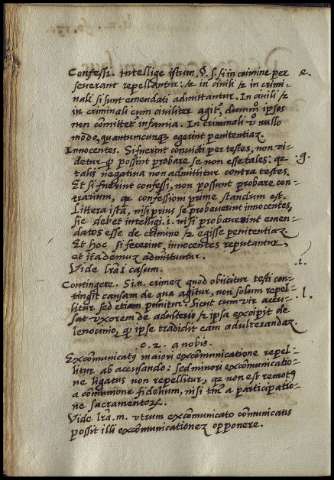 Confessi. Intellige istum. §. si in crimine per e.
severant repellantur. sc in civili sc in crimi-
nali si sunt emendati admittantur. In civili sc
in criminali cum civiliter agit, dummō ipsos
non cōmittet infamia. In criminali v nullo
mōdo, quantumcunq, egerint penitentiaz
Innocentes. Si fuerint convicti per testes, non vi-
detur q possint probare se non esse tales: qr .g.
talis negativa non admittitur contra testes.
Et si fuerint confessi, non possunt probare con-
trarium, qr confessioni prime standum est.
Littera ista, nisi prius se probaverint innocentes,
sic debet intelligi. i. nisi probaverint emen-
datos esse de crimine sc egisse penitentiaz
Et hoc si fecerint, innocentes reputantur,
et ita demuz admittuntur.
Vide lrā l casum. .i.
Contingere. Sia. crimez quod obicitur testi con-
tingit causam de qua agitur, non solum repel- .l.
litur sed etiam punitur. Sicut cum vir accu-
sat uxorem de adulterio sc ipsa excipit de
lenocinio, q ipse tradidit eam adulterandaz
c. 2. a nobis.
Excōmunicatꝫ maiori excōmunicatione repel-
litur ab accusando: sed minori excōmunicatio-
ne ligatus non repellitur, qr non est remotꝫ
a comunione fidelium, nisi tm̄ a participatio-
ne sacramentorꝫ.
Vide lrā. m. utrum excōmunicato cōmunicatus
possit illi excōmunicationez opponere.